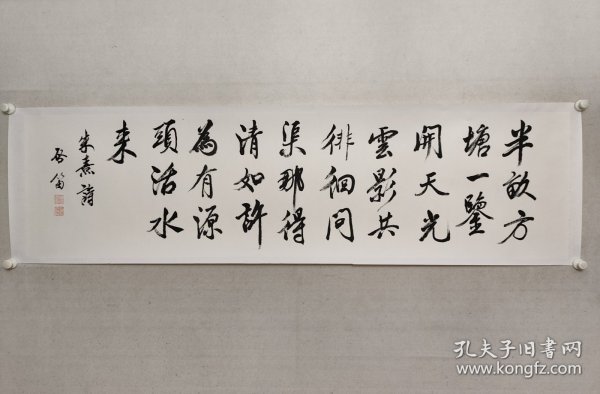 半畝方
塘一鑒
開天光
雲影共
徘徊問
渠那得
清如許
為有源
頭活水
来
朱熹詩
啓笛
孔夫子旧書网
www.kongfz.com